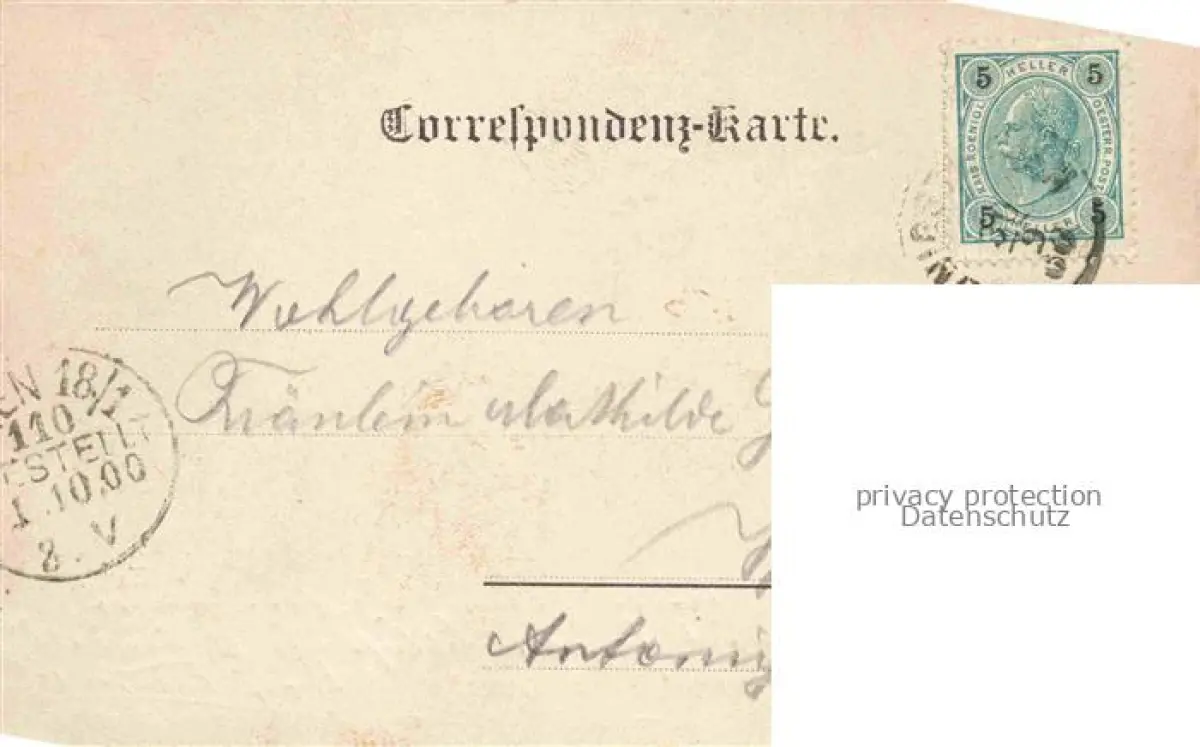 Correspondenz-Karte.
5 HELLER 5
KAIS. KOENIGL. OESTERR. POST
5 HELLER 5
Wohlgeboren
Fräulein Mathilde
18/1
110
BESTELLT
1.10.00
8. V
privacy protection
Datenschutz